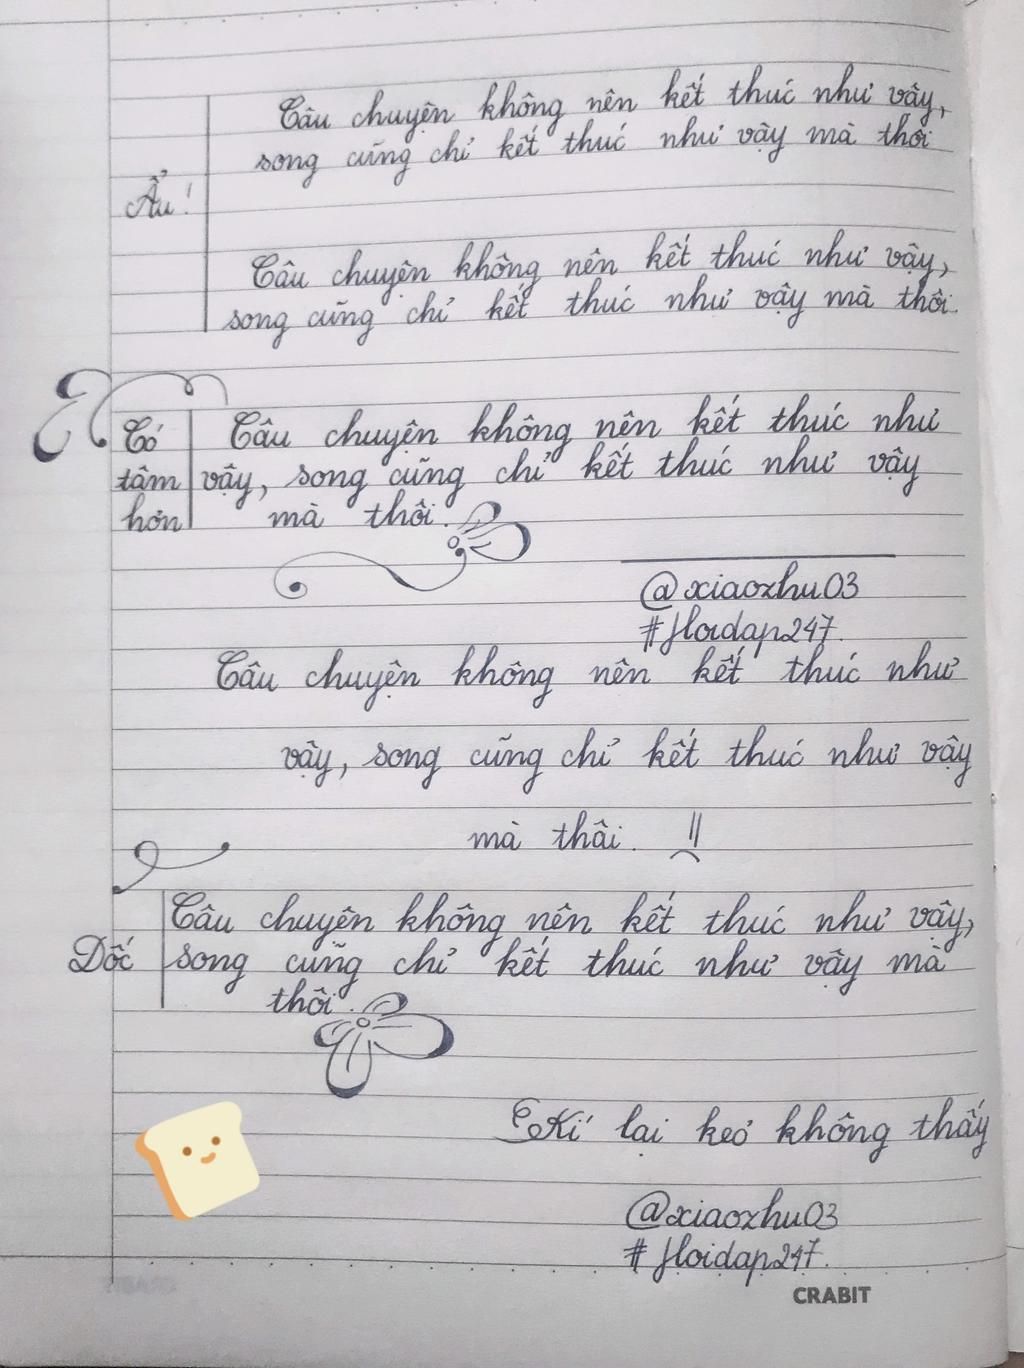 Câu chuyện không nên kết thúc như vậy,
song cũng chỉ kết thúc như vậy mà thôi
Ẩu!
Câu chuyện không nên kết thúc như vậy,
song cũng chỉ kết thúc như vậy mà thôi.
Có
tâm
hơn
Câu chuyện không nên kết thúc như
vậy, song cũng chỉ kết thúc như vậy
mà thôi.
@xiaozhu03
#Hoidap247.
Câu chuyện không nên kết thúc như
vậy, song cũng chỉ kết thúc như vậy
mà thôi.
Câu chuyện không nên kết thúc như vậy,
Dốc
song cũng chỉ kết thúc như vậy mà
thôi.
Kí lại kẻo không thấy
@xiaozhu03
#Hoidap247.
CRABIT